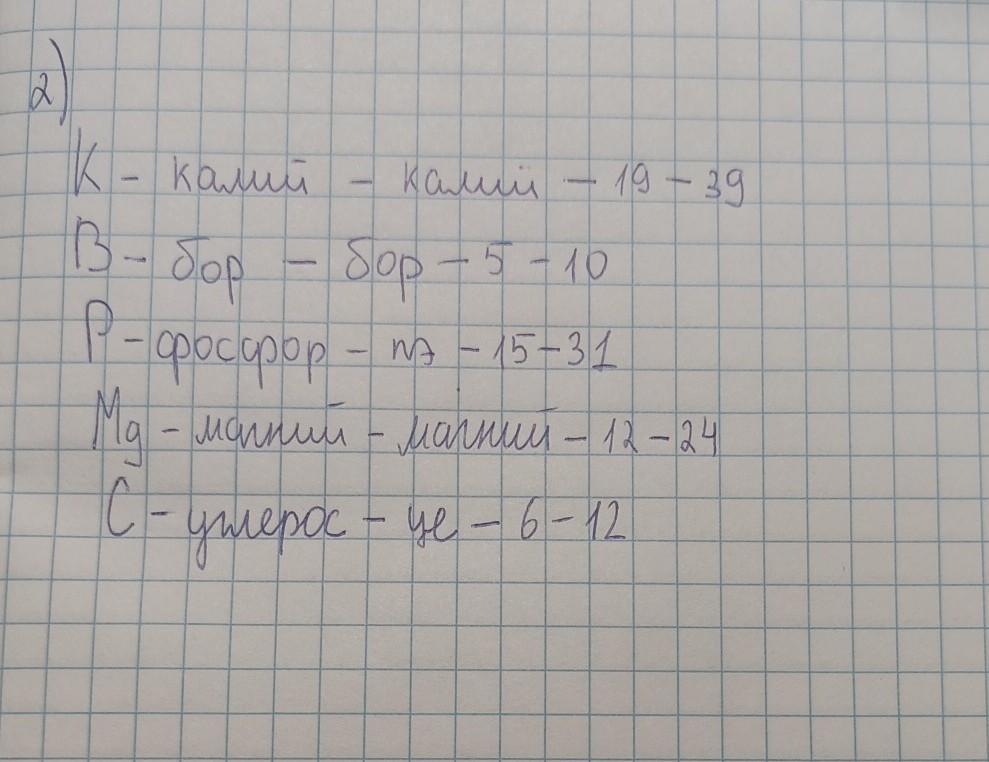 2)
К - калий - калий - 19 - 39
В - бор - бор - 5 - 10
Р - фосфор - пэ - 15 - 31
Mg - магний - магний - 12 - 24
С - углерос - це - 6 - 12